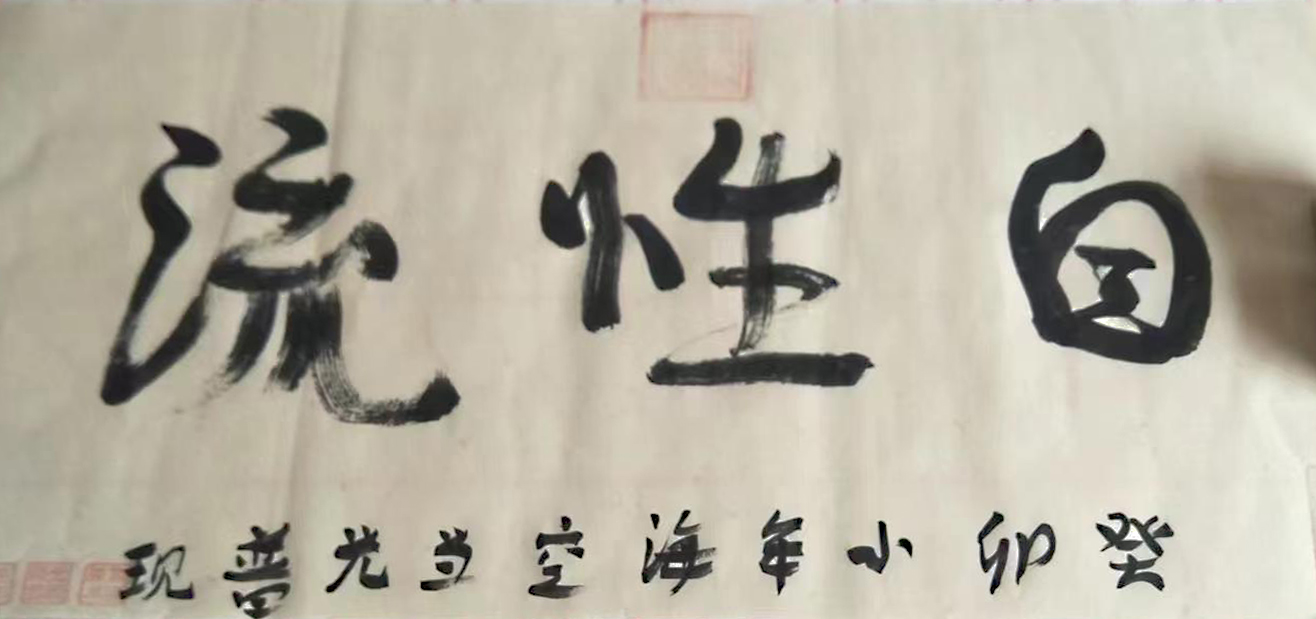 自性流
癸卯小年海空当光普现